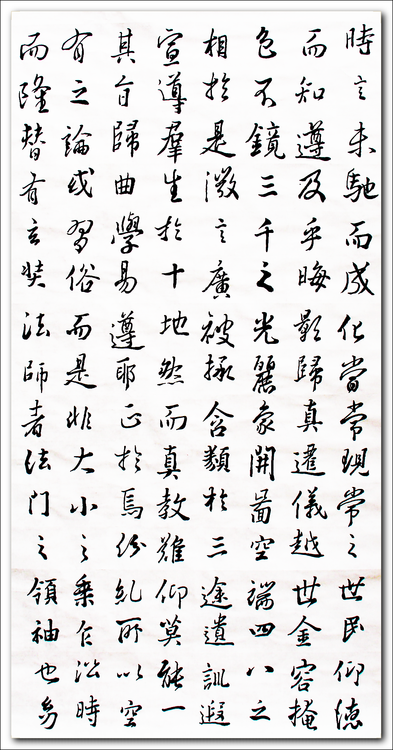 時言未馳而成化當常現常之世民仰德
而知遵及乎晦影歸真遷儀越世金容掩
色不鏡三千之光麗象開圖空端四八之
相於是微言廣被拯含類於三途遺訓遐
宣導羣生於十地然而真教難仰莫能一
其旨歸曲學易遵耶正於焉紛糺所以空
有之論或習俗而是非大小之乘乍沿時
而隆替有玄奘法師者法門之領袖也幼